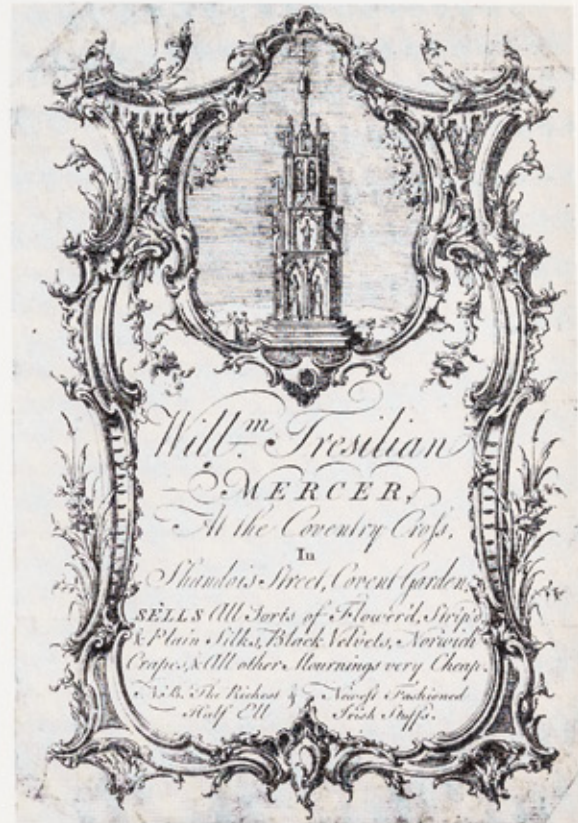 Will.m Tresilian
MERCER,
At the Coventry Croſs,
In
Shandois Street, Covent Garden,
SELLS All Sorts of Flower'd, Strip'd
& Plain Silks, Black Velvets, Norwich
Crapes, & All other Mournings very Cheap.
N.B. The Richest & Newest Fashioned
Half Ell Irish Stuffs.